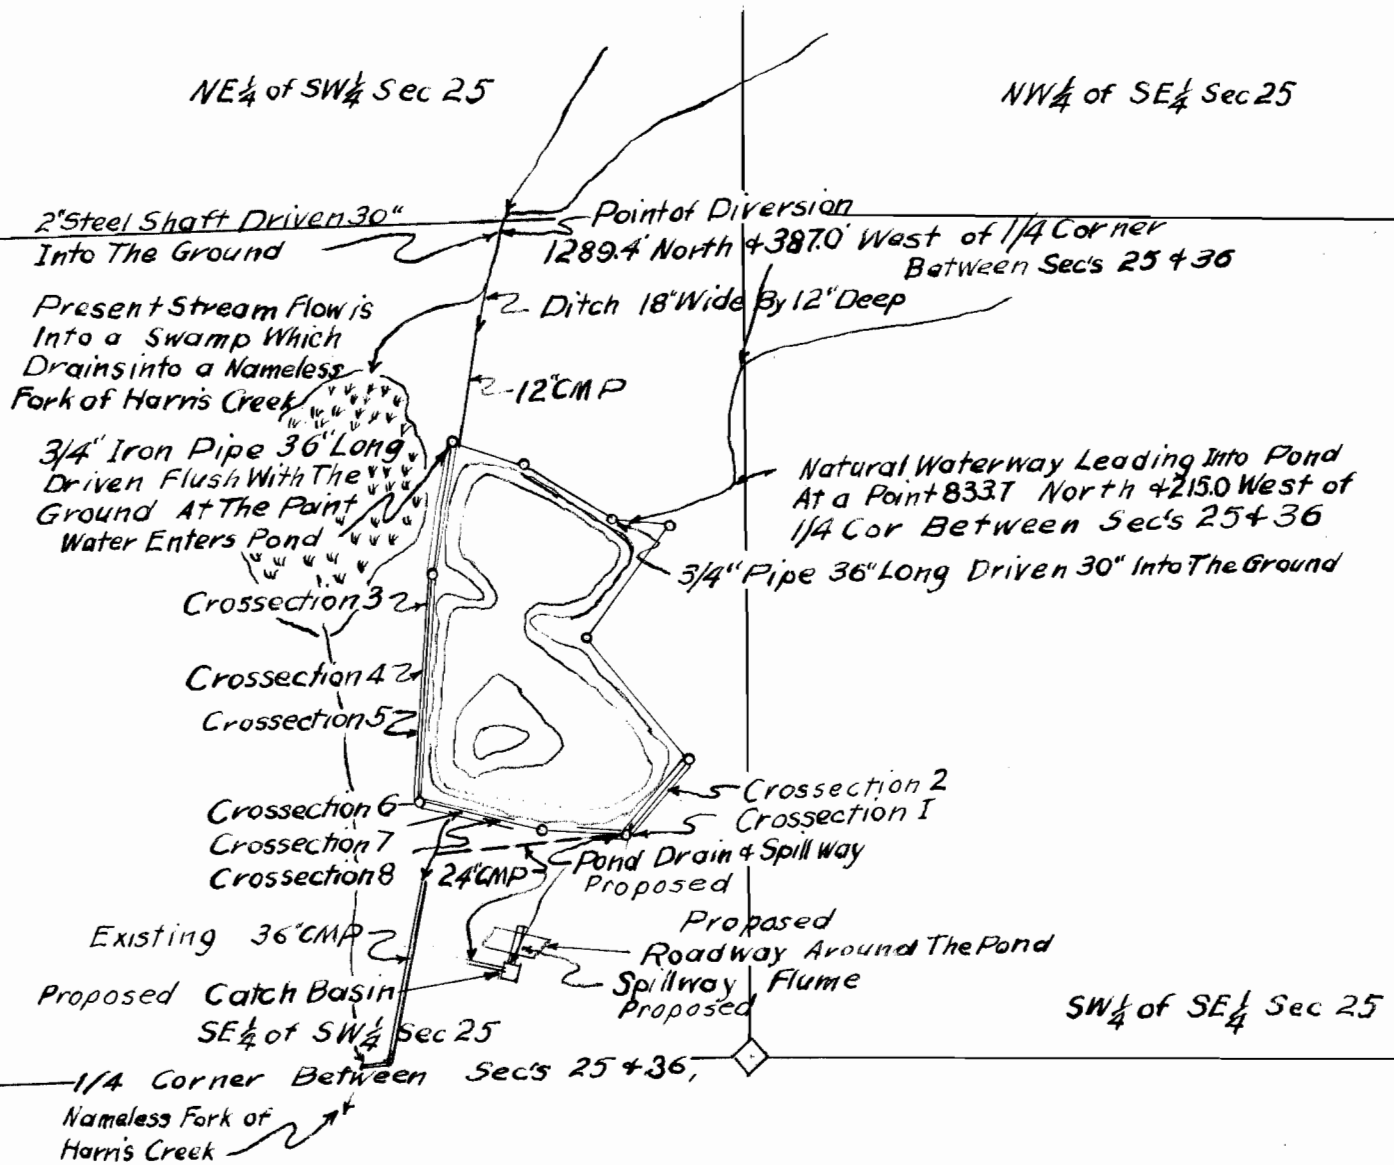 NE¼ of SW¼ Sec 25
NW¼ of SE¼ Sec 25
2"Steel Shaft Driven 30"
Into The Ground
Point of Diversion
1289.4' North & 387.0' West of 1/4 Corner
Between Sec's 25 & 36
Present Stream Flow is
Into a Swamp Which
Drains into a Nameless
Fork of Harris Creek
Ditch 18"Wide By 12"Deep
12"CMP
3/4" Iron Pipe 36"Long
Driven Flush With The
Ground At The Point
Water Enters Pond
Natural Waterway Leading Into Pond
At a Point 833.7 North & 215.0 West of
1/4 Cor Between Sec's 25 & 36
3/4" Pipe 36"Long Driven 30" Into The Ground
Crossection 3
Crossection 4
Crossection 5
Crossection 6
Crossection 7
Crossection 8
Crossection 2
Crossection 1
24"CMP
Pond Drain & Spillway
Proposed
Existing 36"CMP
Proposed
Roadway Around The Pond
Proposed Catch Basin
Spillway Flume
Proposed
SE¼ of SW¼ Sec 25
SW¼ of SE¼ Sec 25
1/4 Corner Between Sec's 25 & 36,
Nameless Fork of
Harris Creek